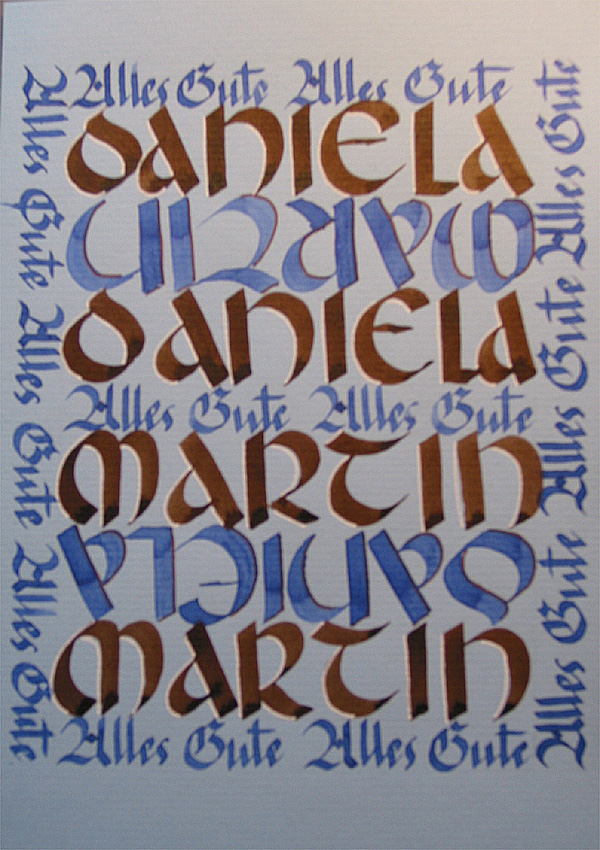 Alles Gute Alles Gute
DANIELA
MARTIN
DANIELA
Alles Gute Alles Gute
MARTIN
DANIELA
MARTIN
Alles Gute Alles Gute
Alles Gute Alles Gute Alles Gute
Alles Gute Alles Gute Alles Gute